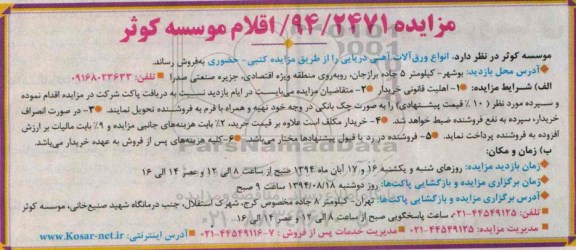 مزایده ۹۴/۲۴۷۱/ اقلام موسسه کوثر
موسسه کوثر در نظر دارد، انواع ورق‌آلات آهنی دریایی را از طریق مزایده کتبی- حضوری به‌فروش رساند.
آدرس محل بازدید: بوشهر- کیلومتر ۵ جاده برازجان، روبه‌روی منطقه ویژه اقتصادی، جزیره صنعتی صدرا تلفن: ۰۹۱۶۸۰۲۳۶۳۳
الف) شرایط مزایده: ۱- اهلیت قانونی خریدار ۲- متقاضیان مزایده می‌بایست در ایام بازدید نسبت به دریافت پاکت شرکت در مزایده اقدام نموده
و سپرده مورد نظر (۱۰ ٪ قیمت پیشنهادی) را به صورت چک بانکی در وجه خود تهیه و همراه با فرم به فروشنده تحویل نمایند. ۳- در صورت انصراف
خریدار، سپرده به نفع فروشنده ضبط خواهد شد. ۴- خریدار مکلف است علاوه بر قیمت خرید، ۲٪ بابت هزینه‌های جانبی مزایده و ۹٪ بابت مالیات بر ارزش
افزوده به فروشنده پرداخت نماید. ۵- فروشنده در رد یا قبول پیشنهادها مختار می‌باشد. ۶- کلیه هزینه‌های پس از فروش به عهده خریدار می‌باشد.
ب) زمان و مکان:
زمان بازدید مزایده: روزهای شنبه و یکشنبه ۱۶ و ۱۷ آبان ماه ۱۳۹۴ صبح از ساعت ۸ الی ۱۲ و عصر ۱۴ الی ۱۶
زمان برگزاری مزایده و بازگشایی پاکت‌ها: روز دوشنبه ۱۳۹۴/۰۸/۱۸ ساعت ۹ صبح
آدرس برگزاری مزایده و بازگشایی پاکت‌ها: تهران- کیلومتر ۸ جاده مخصوص کرج، شهرک استقلال، جنب درمانگاه شهید صنیع‌خانی، موسسه کوثر
تلفن: ۴۴۵۴۹۱۲۵-۰۲۱ ساعت پاسخگویی صبح از ساعت ۸ الی ۱۲ و عصر ۱۴ الی ۱۶
مدیریت مزایده: ۴۴۵۴۹۱۲۵-۰۲۱ مدیریت خدمات پس از فروش: ۷-۴۴۵۴۹۱۱۶-۰۲۱ آدرس اینترنتی: www.Kosar-net.ir
ParsNamadData